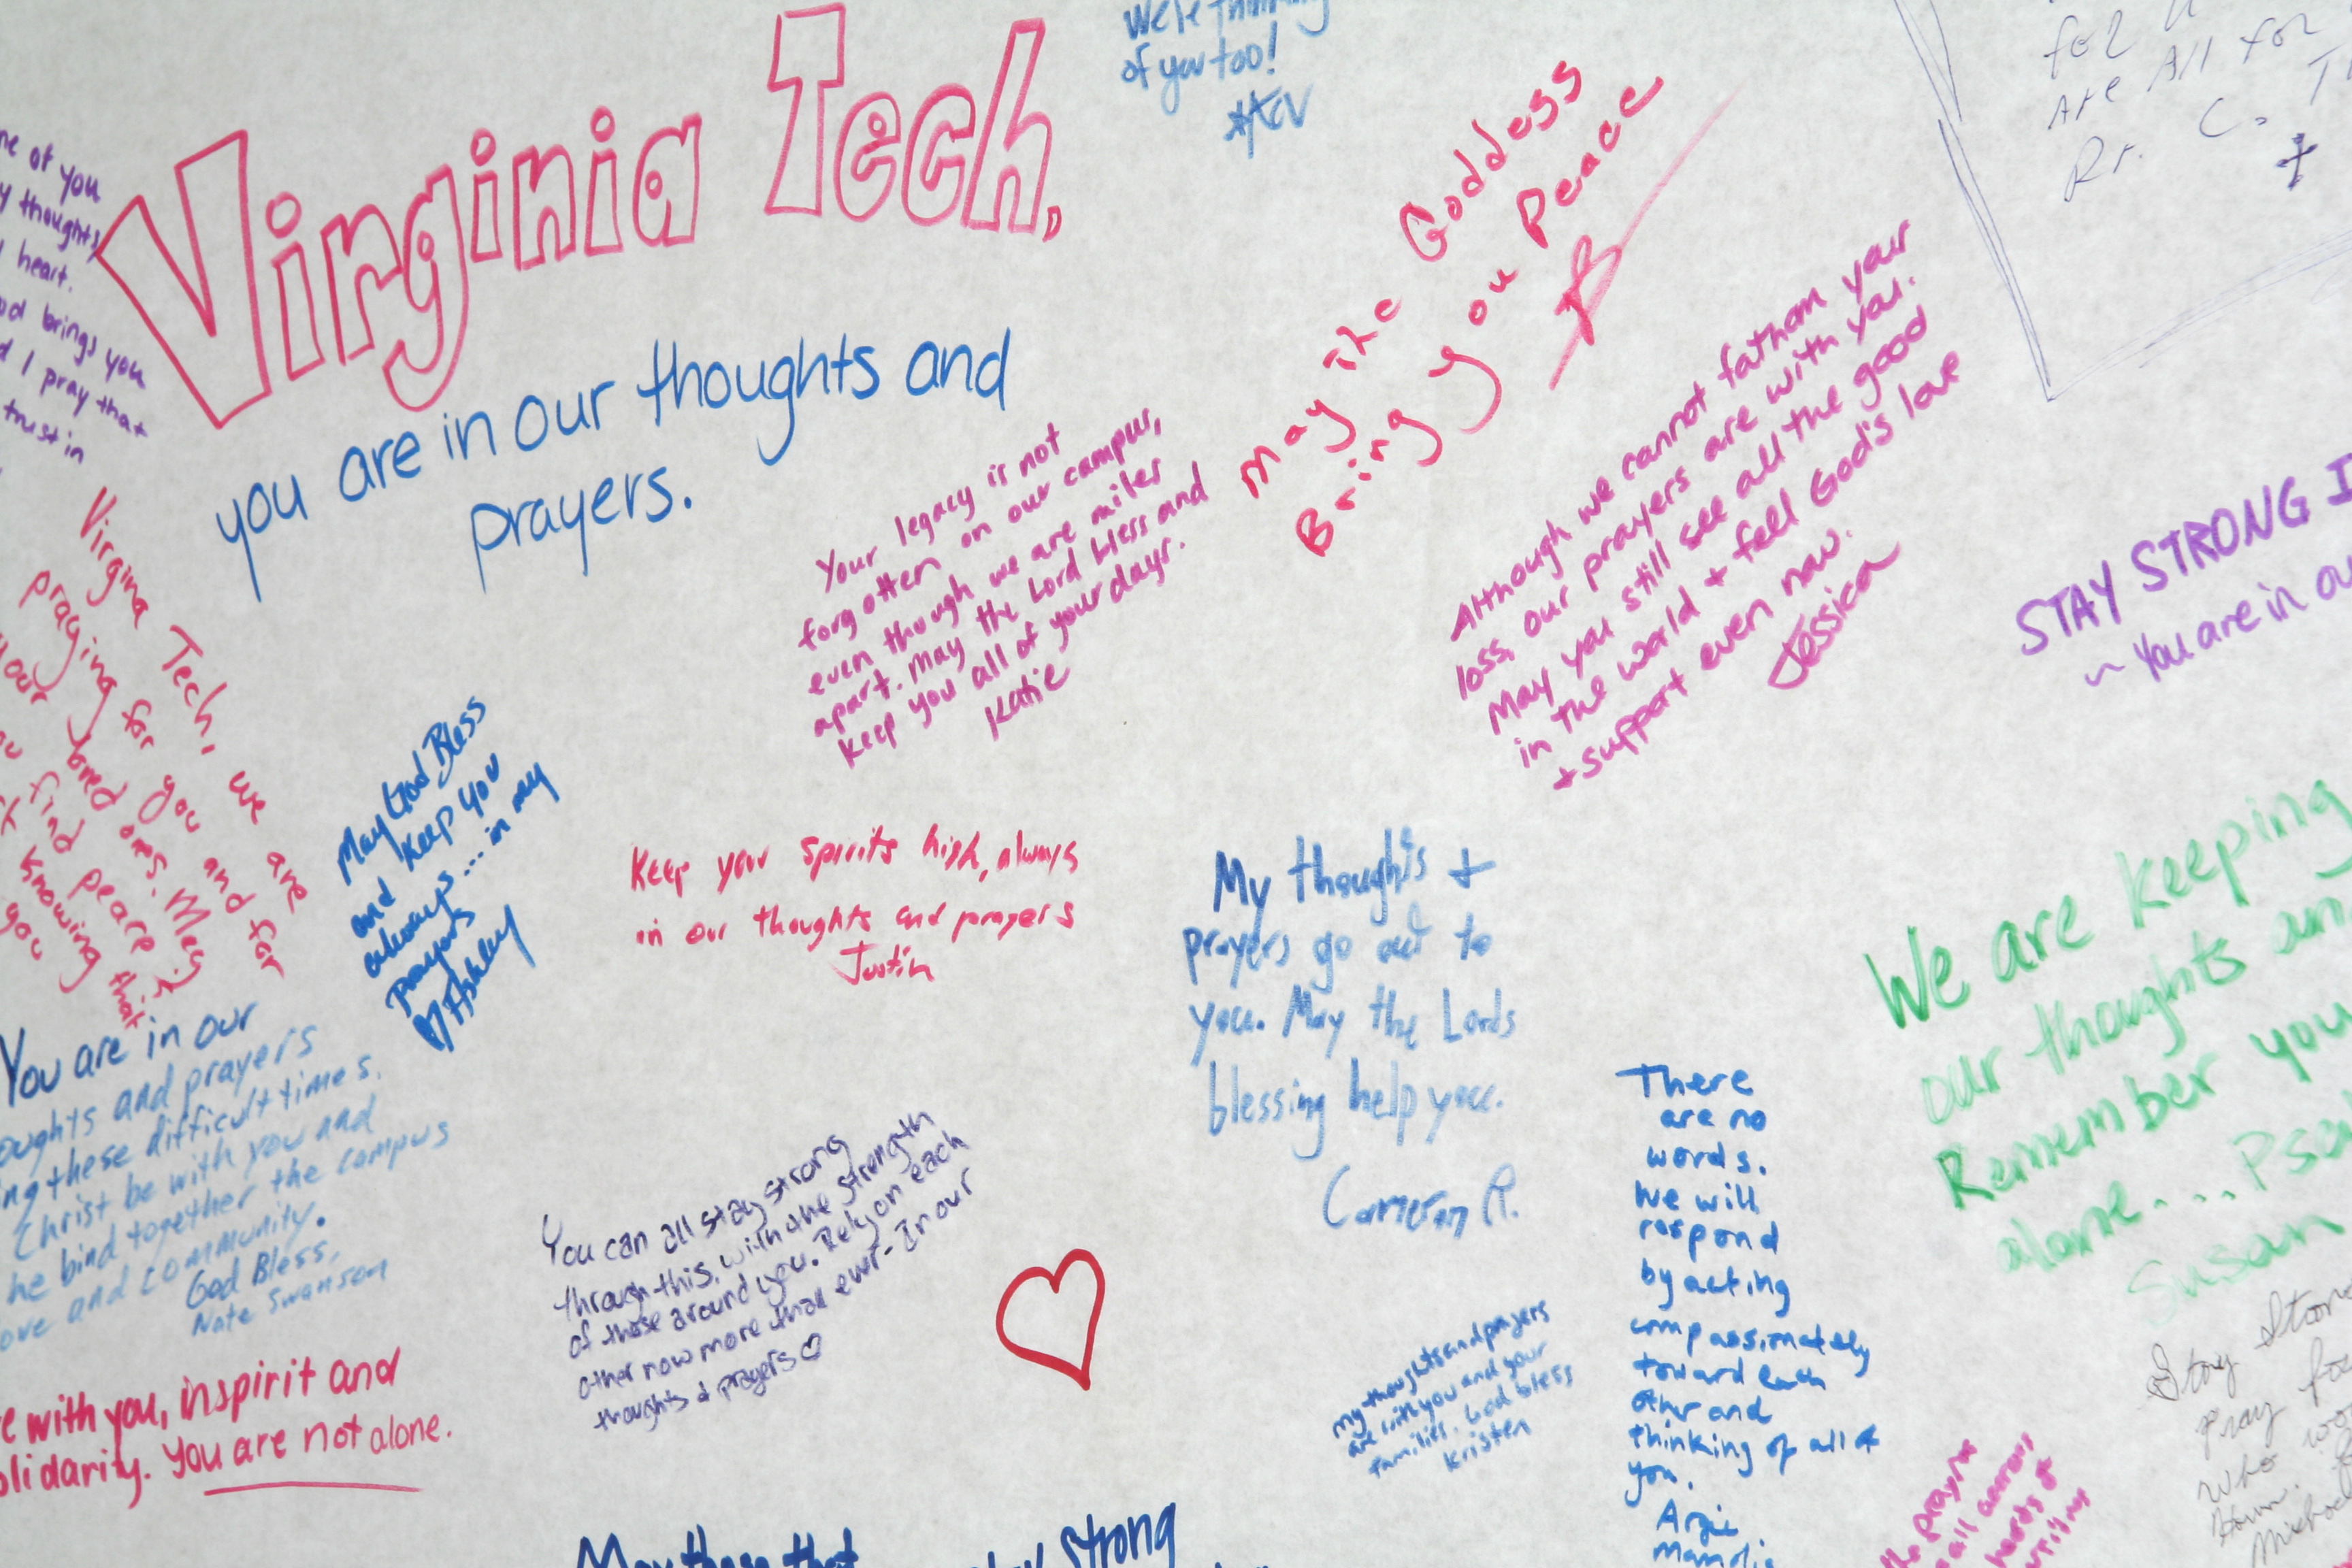 We're thinking
of you too!
Virginia Tech,
you are in our thoughts and
prayers.
ne of you
y thoughts
heart.
od brings you
d I pray that
trust in
May the Goddess
Bring you Peace
for
Are All for
Rr. C.
Your legacy is not
forgotten on our campus,
even though we are miles
apart. May the Lord bless and
keep you all of your days.
Katie
Although we cannot fathom your
loss, our prayers are with you.
May you still see all the good
in the world + fell God's love
+ support even now.
Jessica
STAY STRONG
~ You are in
Virgina Tech, we are
praying for you and for
your loved ones. May
find peace in
knowing that
you
May God Bless
and Keep you
always.... in my
prayers
♡ Ashley
Keep your spirits high, always
in our thoughts and prayers
Justin
My thoughts +
prayers go out to
you. May the Lords
blessing help you.
Cameron R.
We are keeping
our thoughts an
Remember you
alone....Psal
Susan
You are in our
oughts and prayers
ng these difficult times.
Christ be with you and
he bind together the campus
ove and community.
God Bless,
Nate Swanson
You can all stay strong
through this, with the strength
of those around you. Rely on each
other now more than ever- In our
thoughts & prayers ♡
There
are no
words.
We will
respond
by acting
compassionately
toward each
other and
thinking of all of
you.
Angie
my thoughts and prayers
are with you and your
families. God bless
Kristen
e with you, inspirit and
olidarity. You are not alone.
Stay Stron
pray for
who
Michael
the prayers
all across
hearts of
May those that
stay strong